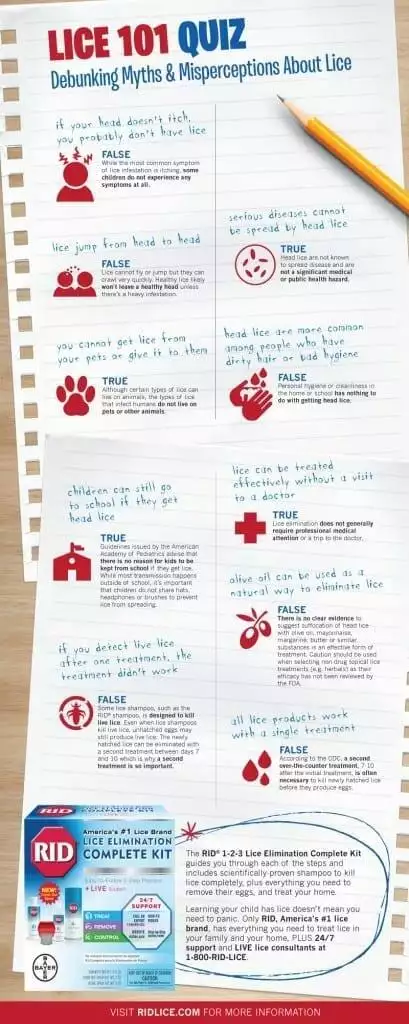 LICE 101 QUIZ
Debunking Myths & Misperceptions About Lice
if your head doesn't itch,
you probably don't have lice
FALSE
While the most common symptom
of lice infestation is itching, some
children do not experience any
symptoms at all.
serious diseases cannot
be spread by head lice
TRUE
Head lice are not known
to spread disease and are
not a significant medical
or public health hazard.
lice jump from head to head
FALSE
Lice cannot fly or jump but they can
crawl very quickly. Healthy lice likely
won't leave a healthy head unless
there's a heavy infestation.
you cannot get lice from
your pets or give it to them
TRUE
Although certain types of lice can
live on animals, the types of lice
that infect humans do not live on
pets or other animals.
head lice are more common
among people who have
dirty hair or bad hygiene
FALSE
Personal hygiene or cleanliness in
the home or school has nothing to
do with getting head lice.
children can still go
to school if they get
head lice
TRUE
Guidelines issued by the American
Academy of Pediatrics advise that
there is no reason for kids to be
kept from school if they get lice.
While most transmission happens
outside of school, it's important
that children do not share hats,
headphones or brushes to prevent
lice from spreading.
lice can be treated
effectively without a visit
to a doctor
TRUE
Lice elimination does not generally
require professional medical
attention or a trip to the doctor.
olive oil can be used as a
natural way to eliminate lice
FALSE
There is no clear evidence to
suggest suffocation of head lice
with olive oil, mayonnaise,
margarine, butter or similar
substances is an effective form of
treatment. Caution should be used
when selecting non drug topical lice
treatments (e.g. herbals) as their
efficacy has not been reviewed by
the FDA.
if you detect live lice
after one treatment, the
treatment didn't work
FALSE
Some lice shampoo, such as the
RID® shampoo, is designed to kill
live lice. Even when lice shampoos
kill live lice, unhatched eggs may
still produce live lice. The newly
hatched lice can be eliminated with
a second treatment between days 7
and 10 which is why a second
treatment is so important.
all lice products work
with a single treatment
FALSE
According to the CDC, a second
over-the-counter treatment, 7-10
after the initial treatment, is often
necessary to kill newly hatched lice
before they produce eggs.
RID
America's #1 Lice Brand
LICE ELIMINATION
COMPLETE KIT
+ LIVE
24/7
SUPPORT
1 TREAT
2 REMOVE
3 CONTROL
BAYER
CAUTION
The RID® 1-2-3 Lice Elimination Complete Kit
guides you through each of the steps and
includes scientifically-proven shampoo to
kill lice completely, plus everything you need to
remove their eggs, and treat your home.
Learning your child has lice doesn't mean you
need to panic. Only RID, America's #1 lice
brand, has everything you need to treat lice in
your family and your home, PLUS 24/7
support and LIVE lice consultants at
1-800-RID-LICE.
VISIT RIDLICE.COM FOR MORE INFORMATION